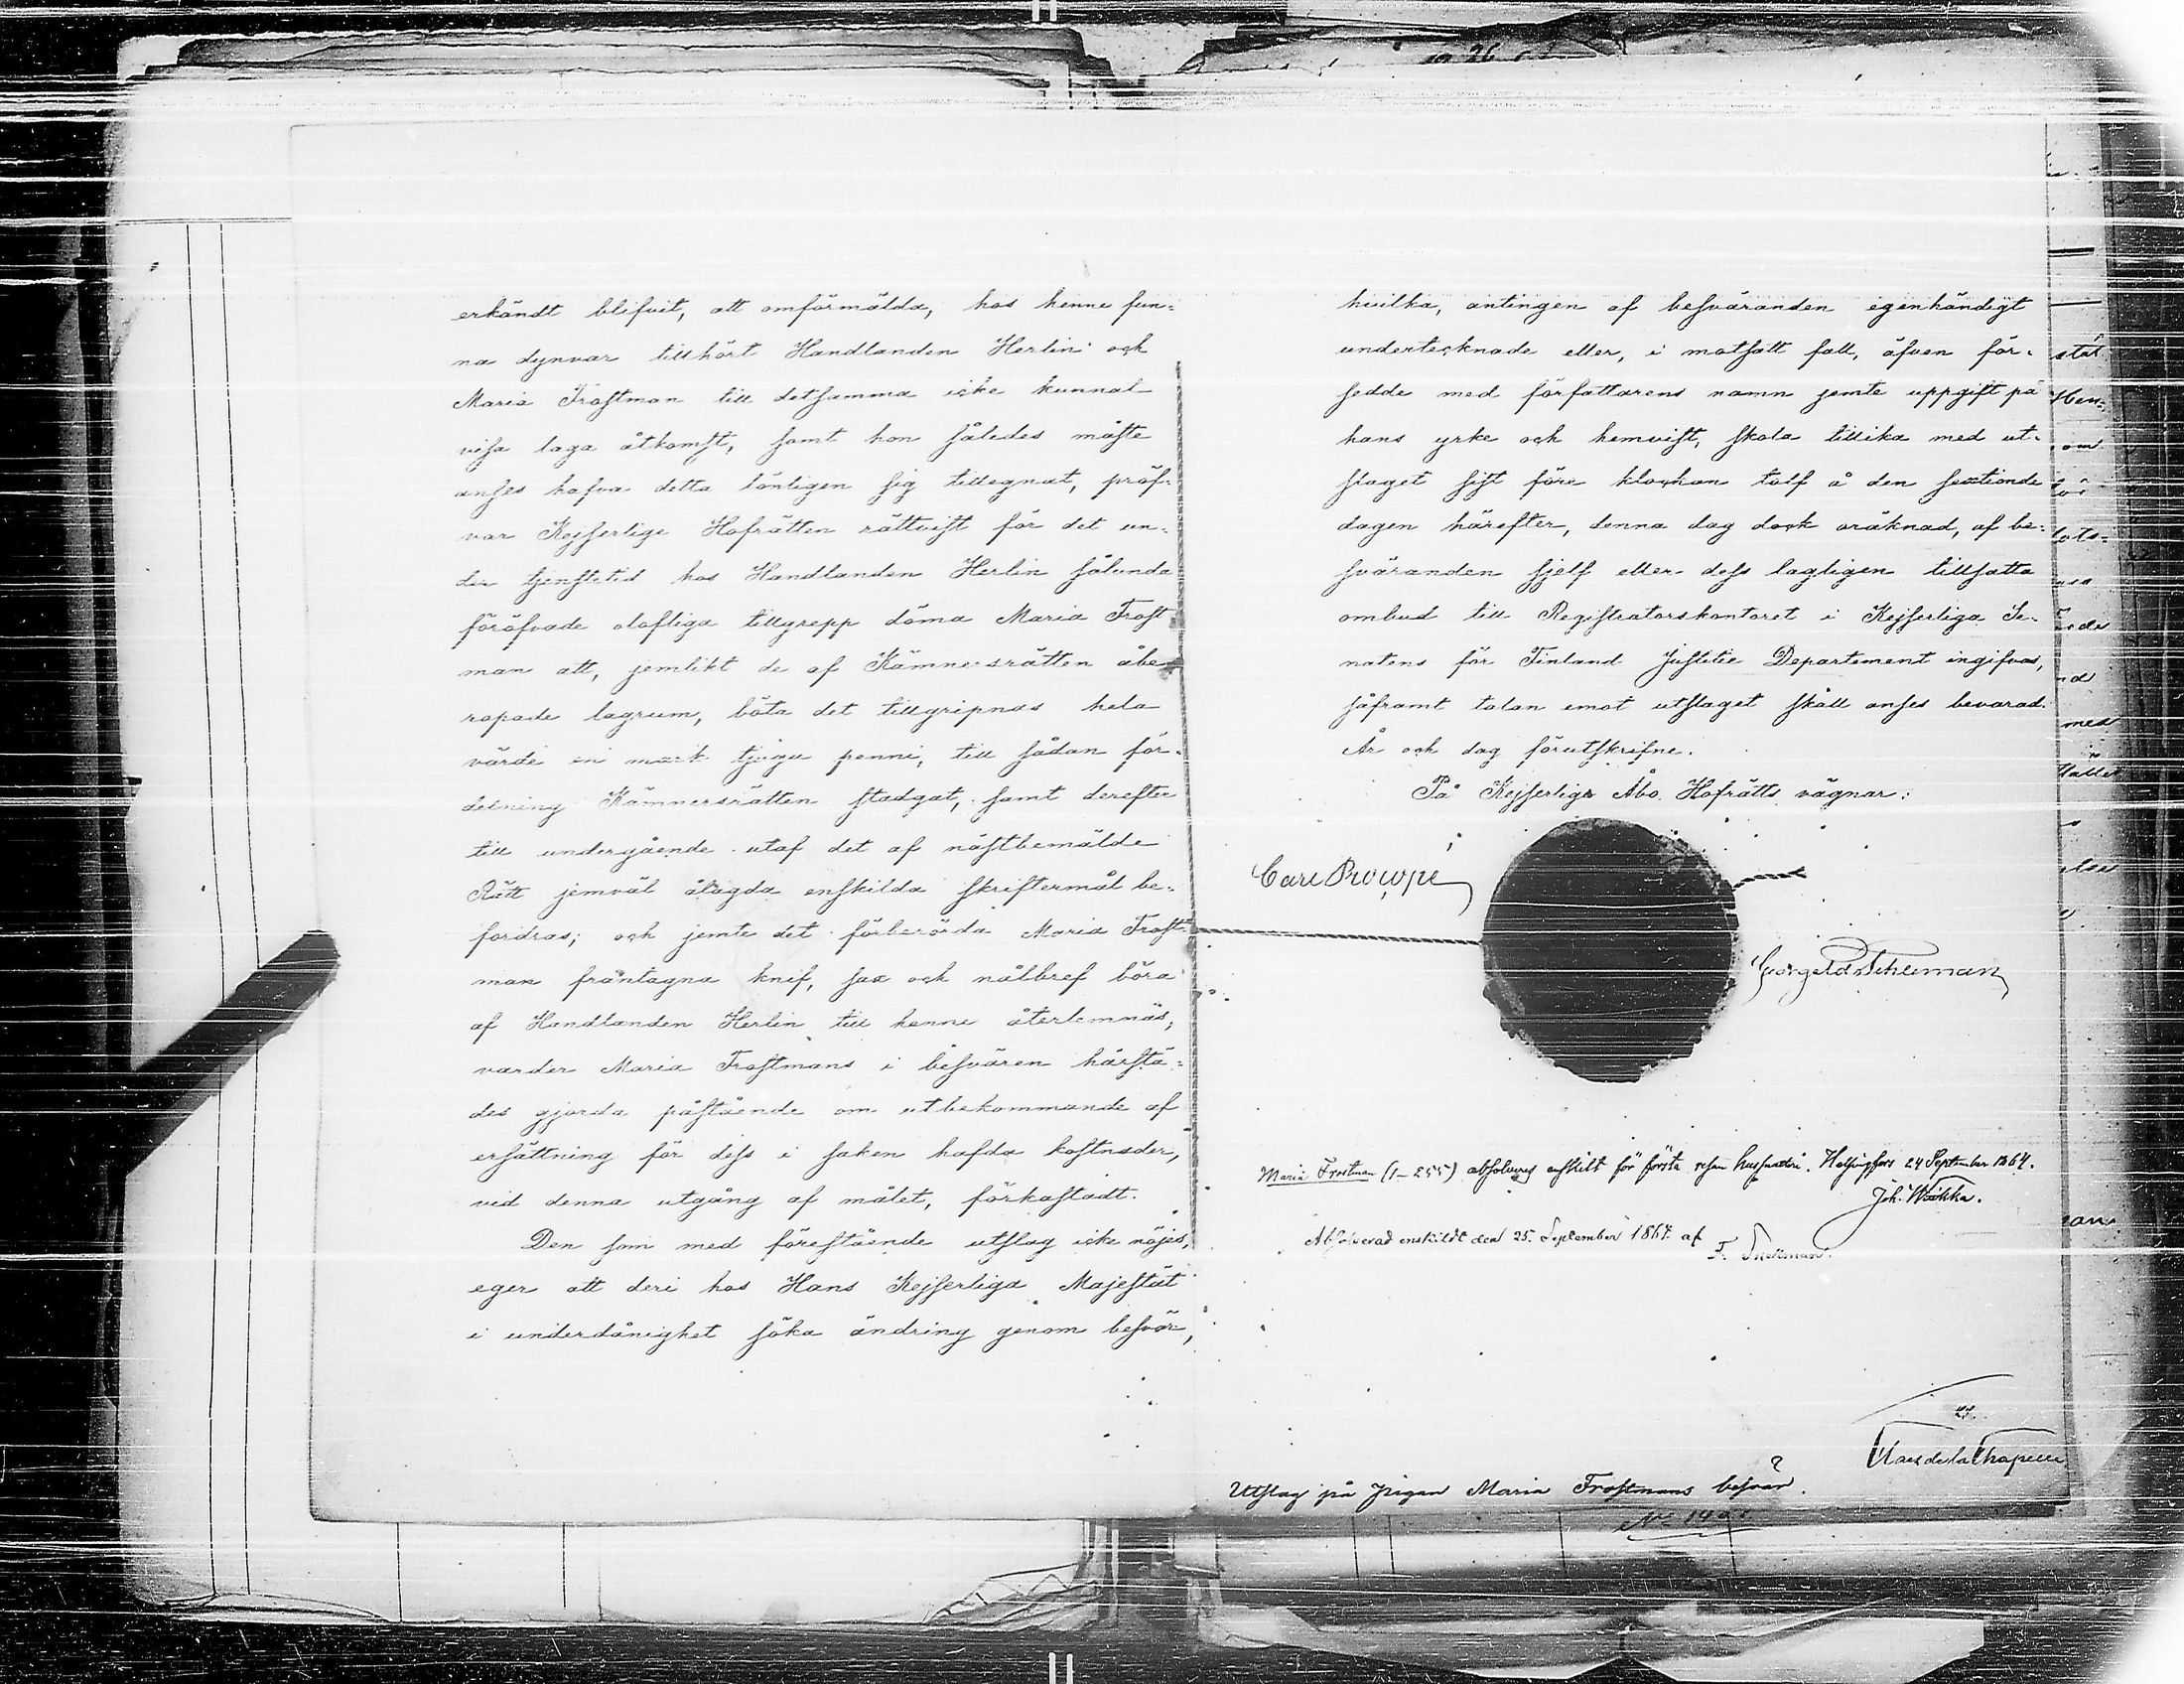 erkändt blifvit, att omförmälda, hos henne fun-
na dynvar tillhört Handlanden Herlin och
Maria Trostman till detsamma icke kunnat
visa laga åtkomst, samt hon således måste
anses hafva detta lönligen sig tillegnat, pröf-
var Kejserliga Hofrätten rättvist för det un-
der tjenstetid hos Handlanden Herlin sålunda
föröfvade olofliga tillgrepp döma Maria Trost
man att, jemlikt de af Kämnersrätten åbe-
ropade lagrum, böta det tillgripnas hela
värde en mark tjugu penni, till sådan för-
delning Kämnersrätten stadgat, samt derefter
till undergående utaf det af nästbemälde
Rätt jemväl ålagda enskilda skriftermål be-
fordras; och jemte det förberörda Maria Trost-
man fråntagna knif, sax och nålbref böra
af Handlanden Herlin till henne återlemnas,
varder Maria Trostmans i besvären härstä-
des gjorda påstående om utbekommande af
ersättning för dess i saken hafda kostnader,
vid denna utgång af målet, förkastadt.
Den som med förestående utslag icke nöjes,
eger att deri hos Hans Kejserliga Majestät
i underdånighet söka ändring genom besvär,
hvilka, antingen af besväranden egenhändigt
undertecknade eller, i motsatt fall, äfven för-
sedde med författarens namn jemte uppgift på
hans yrke och hemvist, skola tillika med ut-
slaget sist före klockan tolf å den sextionde
dagen härefter, denna dag dock oräknad, af be-
sväranden sjelf eller dess lagligen tillsatta
ombud till Registratorskontoret i Kejserliga Se-
natens för Finland Justitie Departement ingifvas,
såframt talan emot utslaget skall anses bevarad.
År och dag förutskrifne.
På Kejserliga Åbo Hofrätts vägnar:
Carl Procopé
Georg Schuman
Maria Trostman (1-255) absolveras enskilt för första resan snatteri. Helsingfors 24 September 1864.
Joh. Wäkka.
Absolverad enskildt den 25. September 1864 af
F. Snellman.
Clas de la Chapelle
Utslag på pigan Maria Trostmans besvär.